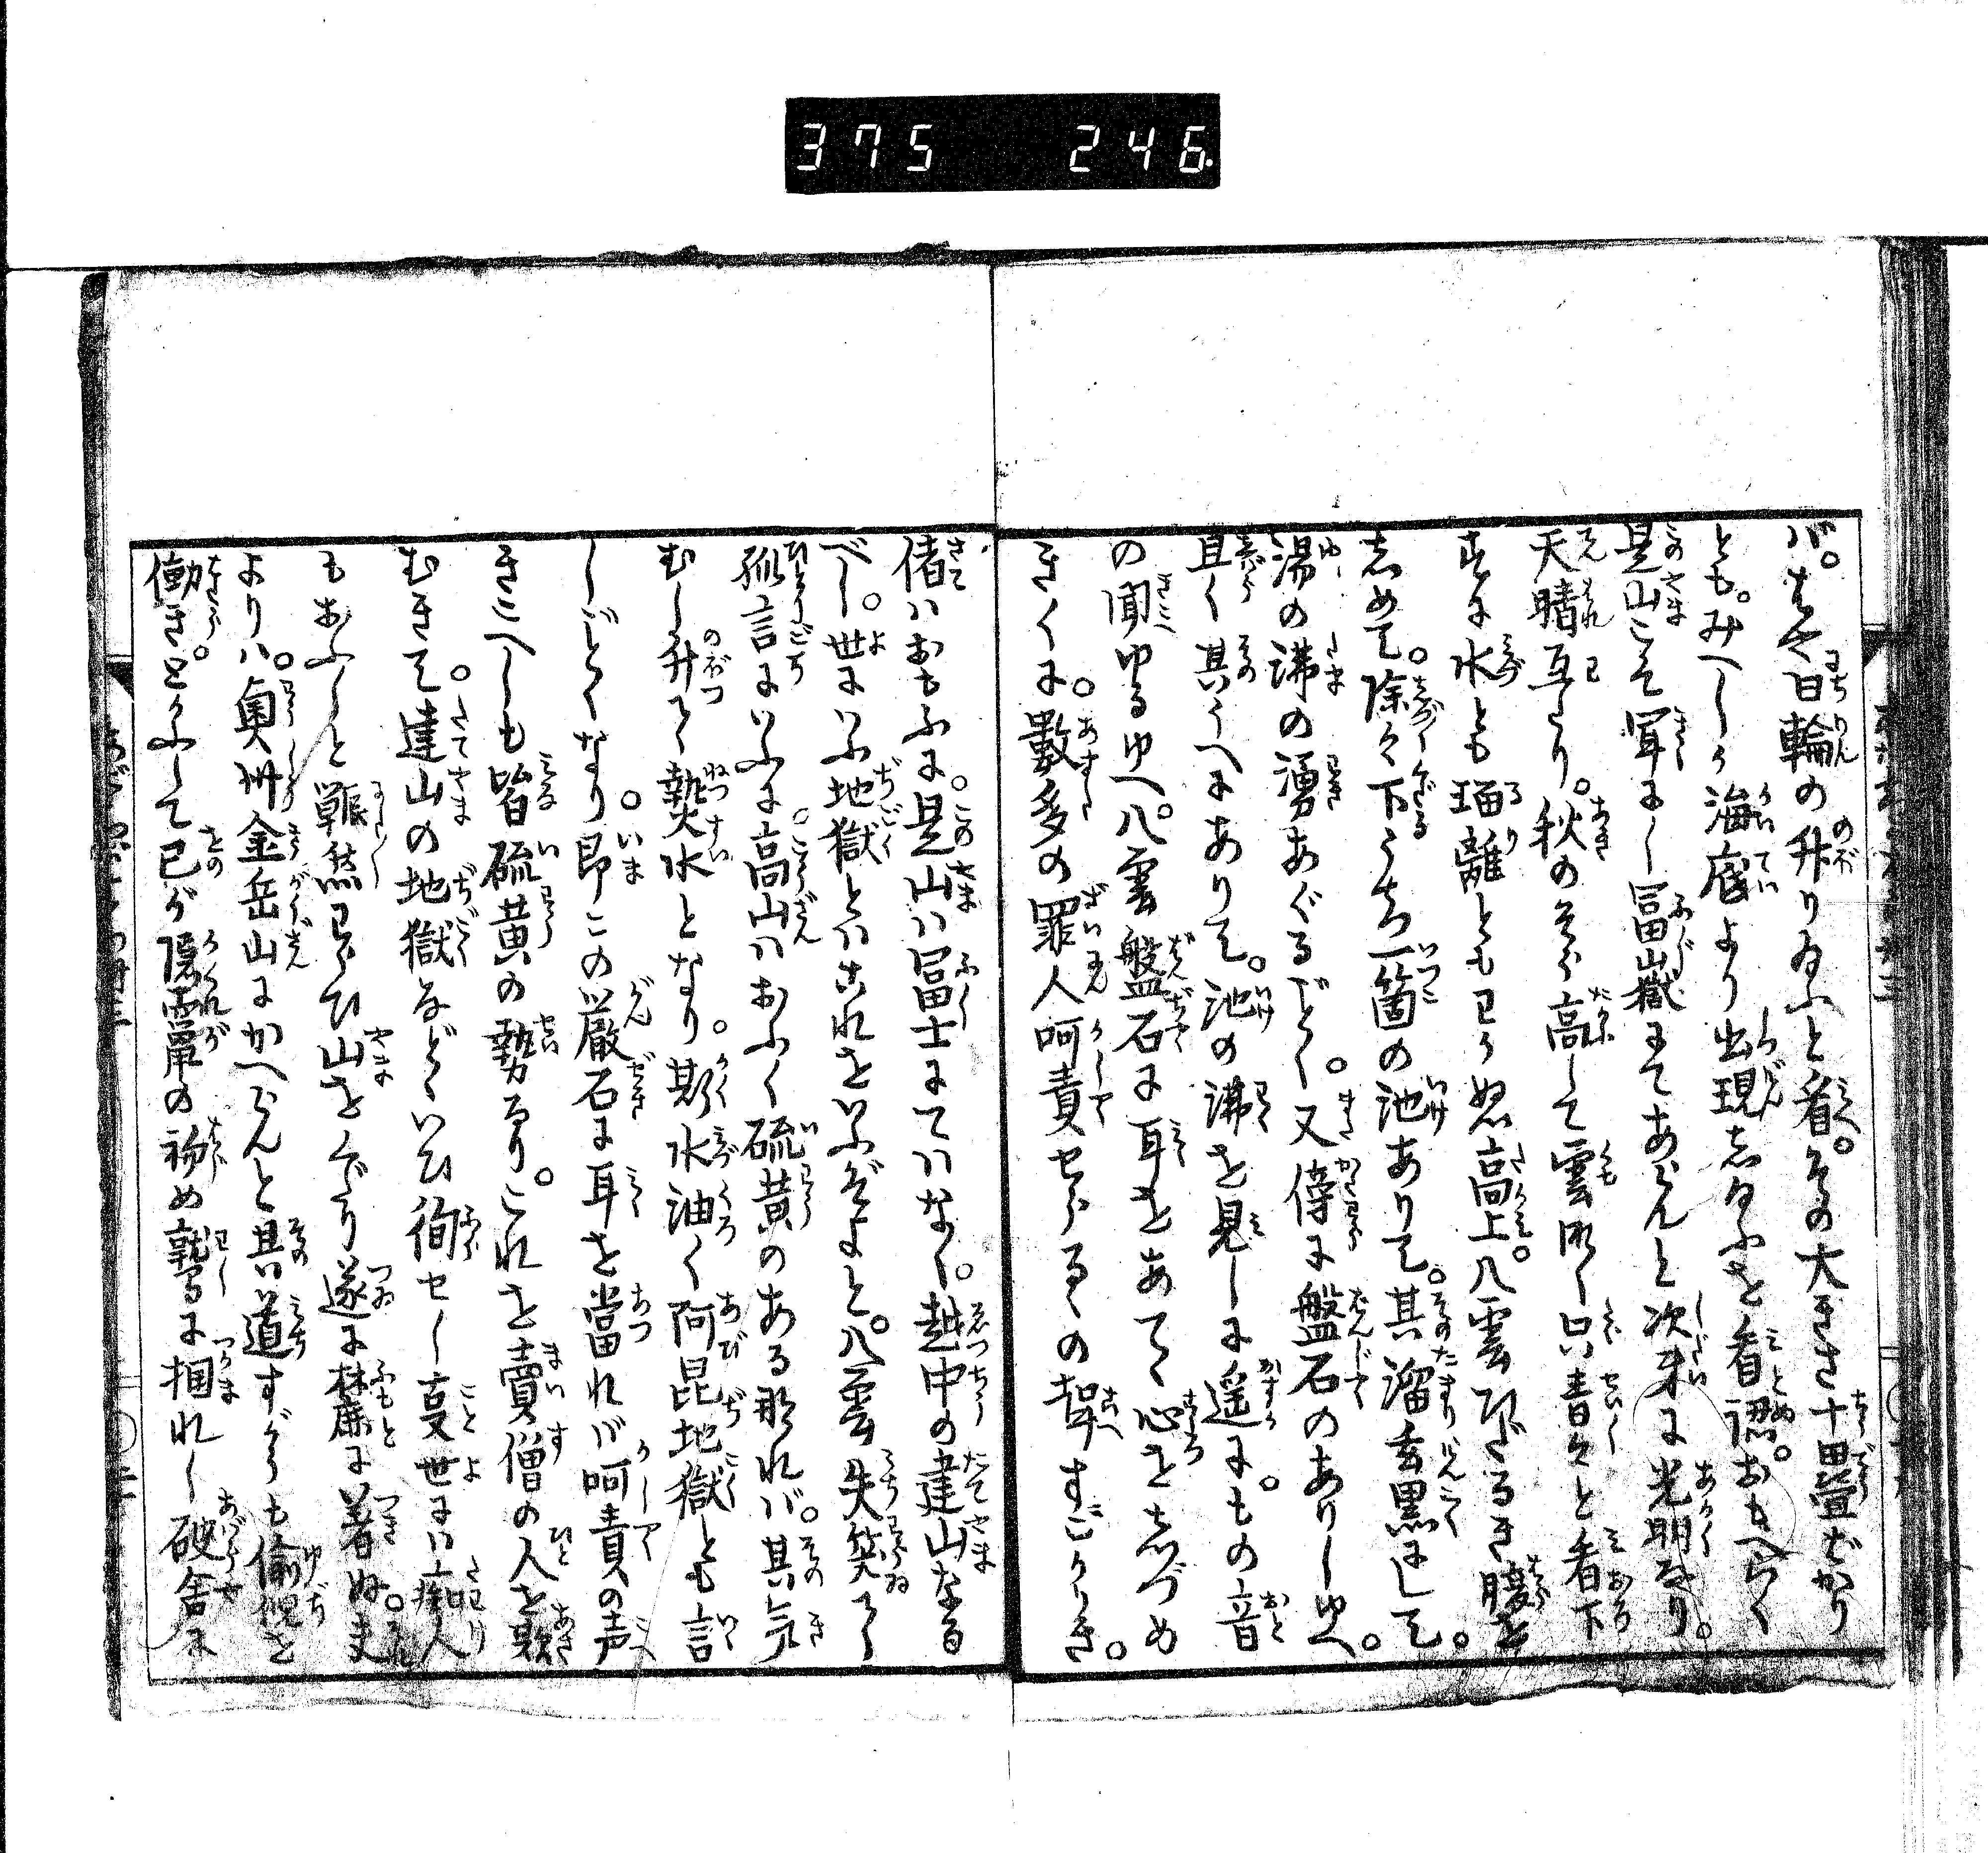 375 246
バ。はや日輪の升りゐふと看へ。その大きさ十畳ばかり
とも。みへしが海底より出現しゐふを看認。おもへらく
是山こそ聞まし冨山嶽にてあらんと次第に光明なり。
天晴互り。秋のそら高して雲深く只青々と看下
せば水とも瑠離ともわかぬ高上。八雲ひだるき腹を
しめて。除々下るうち一箇の池ありて。其溜玄黒にして。
湯の沸の湧あぐるごとく。又傍に盤石のありしゆへ。
且く其うへにありて。池の沸を見しに遥に。もの音
の聞ゆるゆへ。八雲盤石に耳をあてて心をしづめ
きくに。數多の罪人呵責せらるるの声すごかりき。
偖ハおもふに。是山ハ冨士にてハなく。越中の建山なる
べし。世にいふ地獄とハこれをいふぞよと。八雲失笑てて
孤言にいふに。高山ハおふく硫黄のある那れバ。其氣
むし升りて熱水となり。斯水油く阿昆地獄とも言
しごとくなり。即この巖石に耳を當れバ呵責の声
きこへしも皆硫黄の勢なり。これを賣僧の人を欺
むきて。建山の地獄などといひ徇せし支世にハ痴人
もおふしと輾然わらひ山をくだり遂に麓に着ぬ。夫
よりハ。奥州金岳山にかへらんと其道すがらも偸児を
働き。とかふして己が隠家の初め鷲に掴れし破舎に